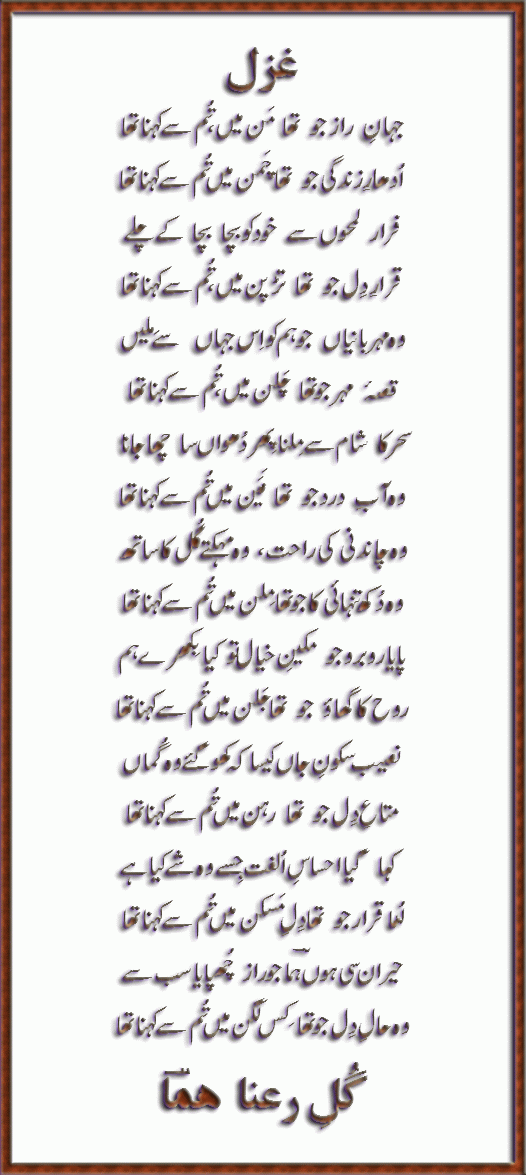 غزل
جہانِ راز جو تھا مَن میں، تُم سے کہنا تھا
اُدھارِ زندگی جو تھا چَمن میں تُم سے کہنا تھا
فرار لمحوں سے خود کو بچا بچا کے چلے
قرارِ دِل جو تھا تڑپن میں، تُم سے کہنا تھا
وہ مہربانیاں جو ہم کو اس جہاں سے ملیں
قصۂ مہر جو تھا چَلن میں، تُم سے کہنا تھا
سحر کا شام سے مِلنا، پھر دُھواں سا چھا جانا
وہ آب درد جو تھا نَین میں تُم سے کہنا تھا
وہ چاندنی کی راحت، وہ مہکتے گُل کا ساتھ
وہ دُکھ تنہائی کا جو تھا مِلن میں تُم سے کہنا تھا
پایا روبرو جو مکینِ خیال تو کیا بکھرے ہم
روح کا گھاؤ جو تھا جَلن میں تُم سے کہنا تھا
نصیب سکونِ جاں کیسا کہ کھو گئے وہ گُماں
متاعِ دِل جو تھا رہن میں تُم سے کہنا تھا
کہا گیا احساسِ اُلفت جِسے وہ شے کیا ہے
لُٹا قرار جو تھا دِلِ مَسکن میں تُم سے کہنا تھا
حیران سی ہوں ہماؔ جو راز چُھپایا سب سے
وہ حالِ دِل جو تھا کِس لگن میں تُم سے کہنا تھا
گُلِ رعنا ہماؔ